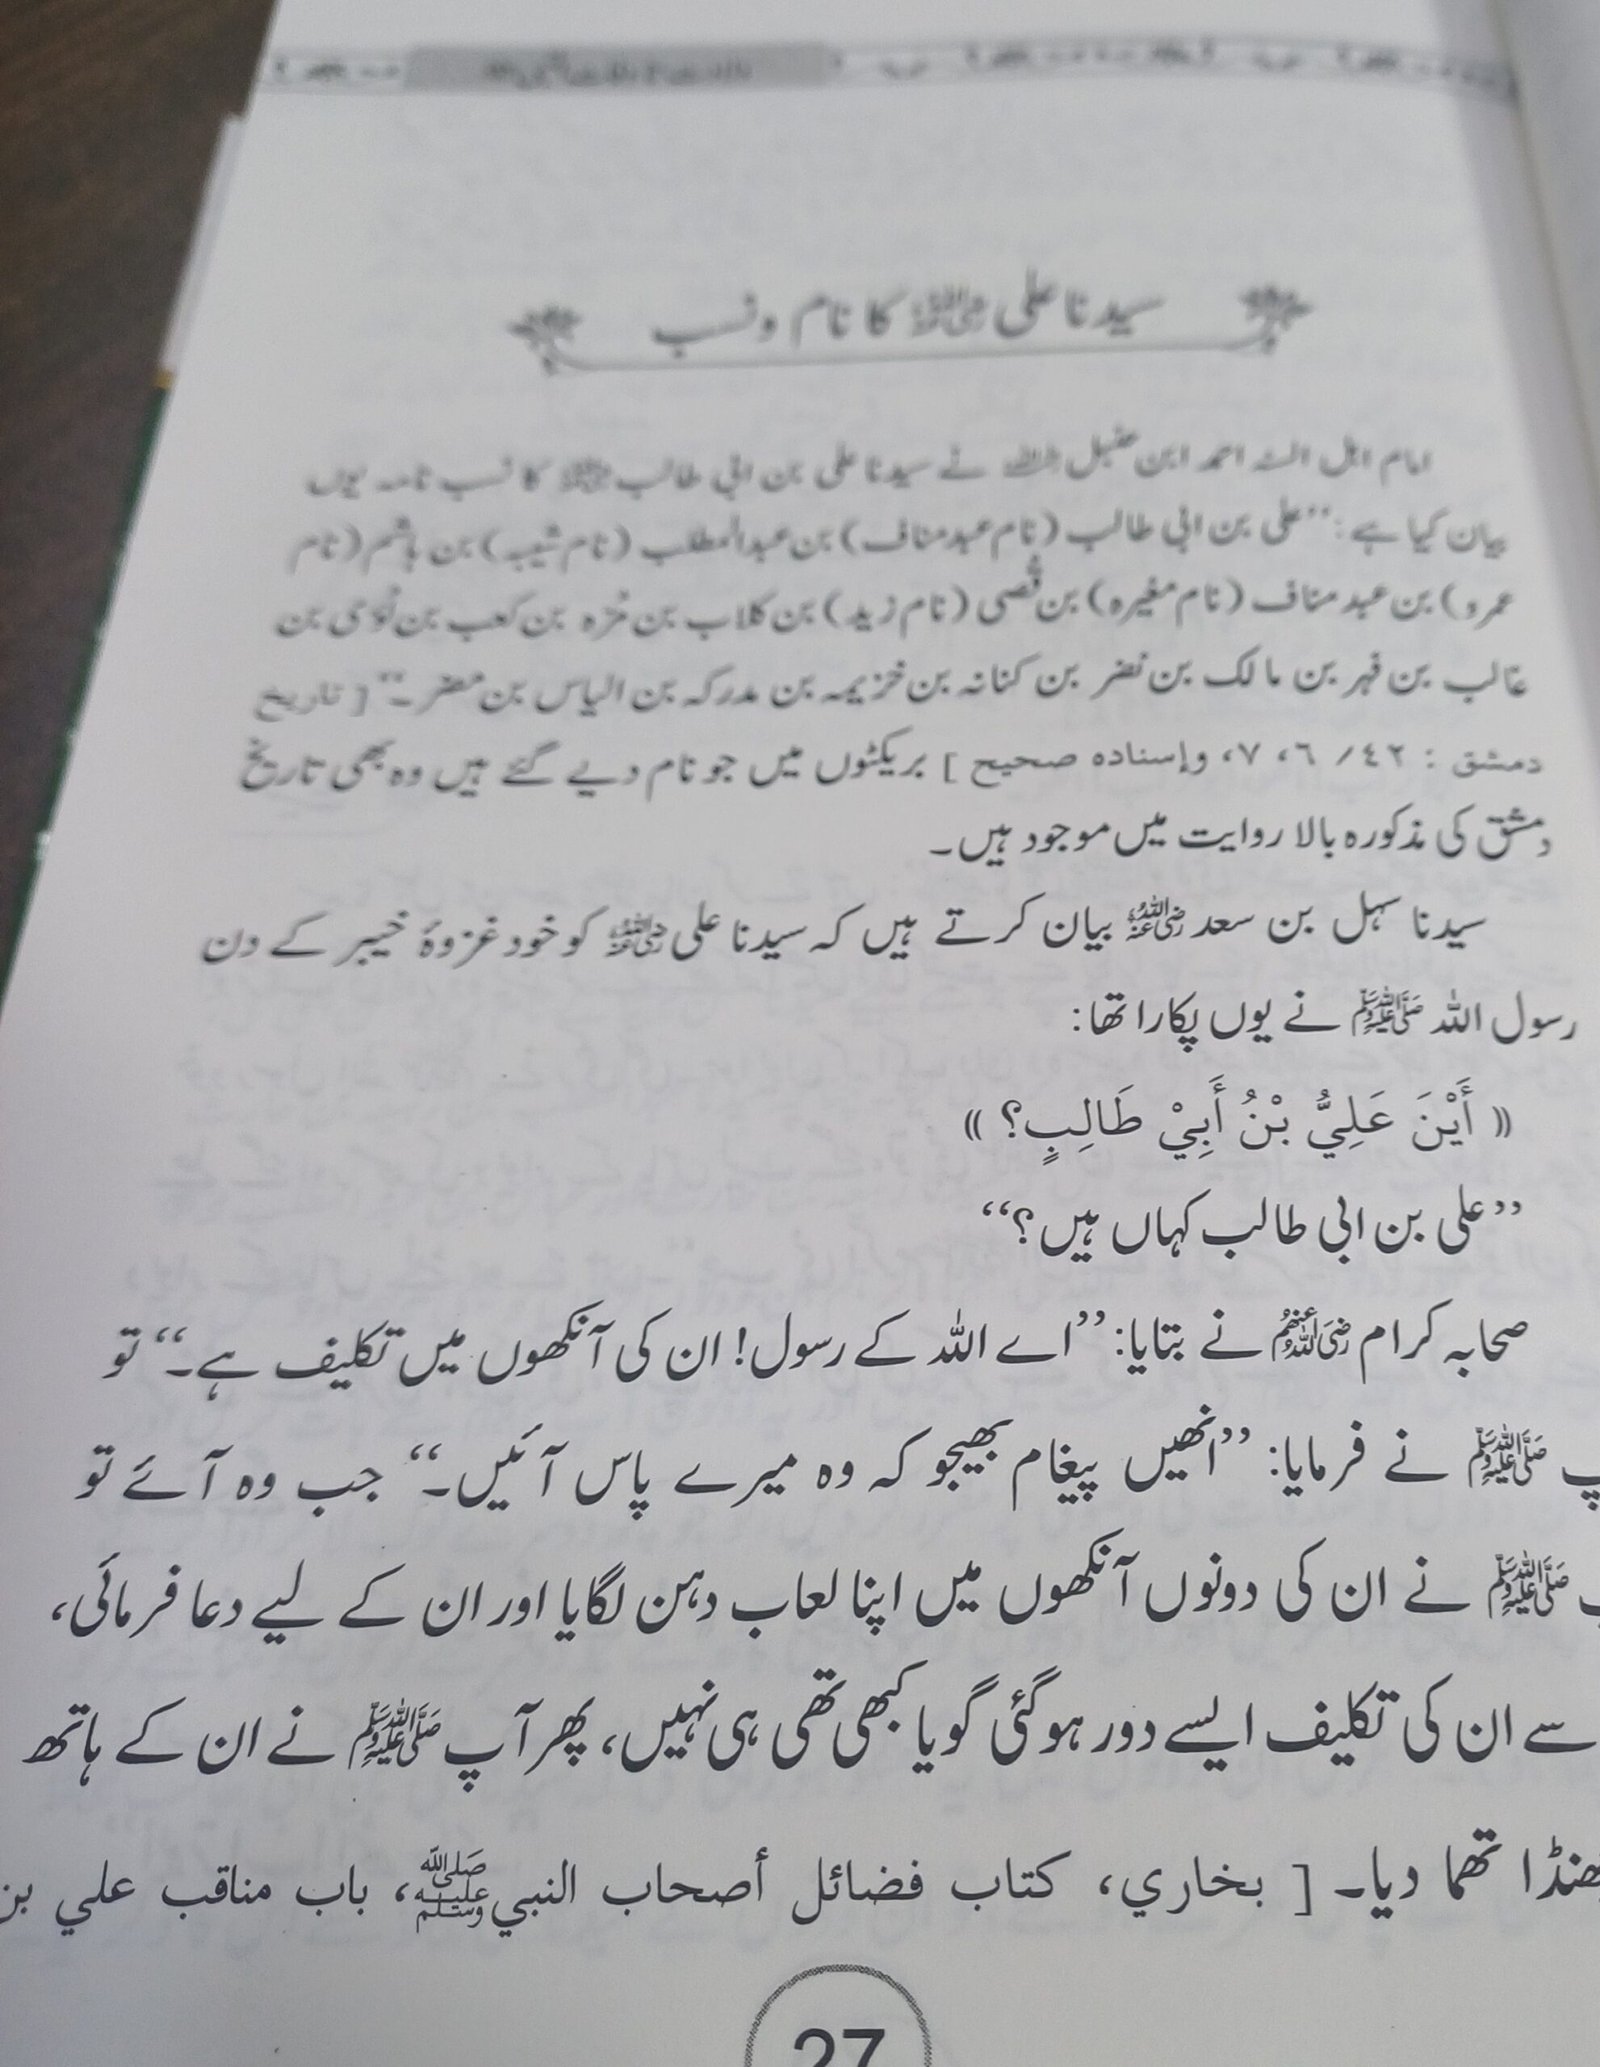 سیدنا علی رضی اللہ عنہ کا نام و نسب
امام اہل السنہ احمد ابن حنبل رحمہ اللہ نے سیدنا علی بن ابی طالب رضی اللہ عنہ کا نسب نامہ یوں
بیان کیا ہے: ’’علی بن ابی طالب (نام عبد مناف) بن عبدالمطلب (نام شیبہ) بن ہاشم (نام
عمرو) بن عبد مناف (نام مغیرہ) بن قُصی (نام زید) بن کلاب بن مُرہ بن کعب بن لُؤی بن
غالب بن فہر بن مالک بن نضر بن کنانہ بن خزیمہ بن مدرکہ بن الیاس بن مضر۔‘‘ [ تاریخ
دمشق : ٤٢ / ٦ ، ٧، وإسنادہ صحیح ] بریکٹوں میں جو نام دیے گئے ہیں وہ بھی تاریخ
دمشق کی مذکورہ بالا روایت میں موجود ہیں۔
سیدنا سہل بن سعد رضی اللہ عنہ بیان کرتے ہیں کہ سیدنا علی رضی اللہ عنہ کو خود غزوۂ خیبر کے دن
رسول اللہ ﷺ نے یوں پکارا تھا:
(( أَيْنَ عَلِيُّ بْنُ أَبِيْ طَالِبٍ؟ ))
’’علی بن ابی طالب کہاں ہیں؟‘‘
صحابہ کرام رضی اللہ عنہم نے بتایا: ’’اے اللہ کے رسول! ان کی آنکھوں میں تکلیف ہے۔‘‘ تو
پ ﷺ نے فرمایا: ’’انھیں پیغام بھیجو کہ وہ میرے پاس آئیں۔‘‘ جب وہ آئے تو
ﷺ نے ان کی دونوں آنکھوں میں اپنا لعاب دہن لگایا اور ان کے لیے دعا فرمائی،
سے ان کی تکلیف ایسے دور ہوگئی گویا کبھی تھی ہی نہیں، پھر آپ ﷺ نے ان کے ہاتھ
ھنڈا تھما دیا۔ [ بخاري، کتاب فضائل أصحاب النبي ﷺ، باب مناقب علي بن
27